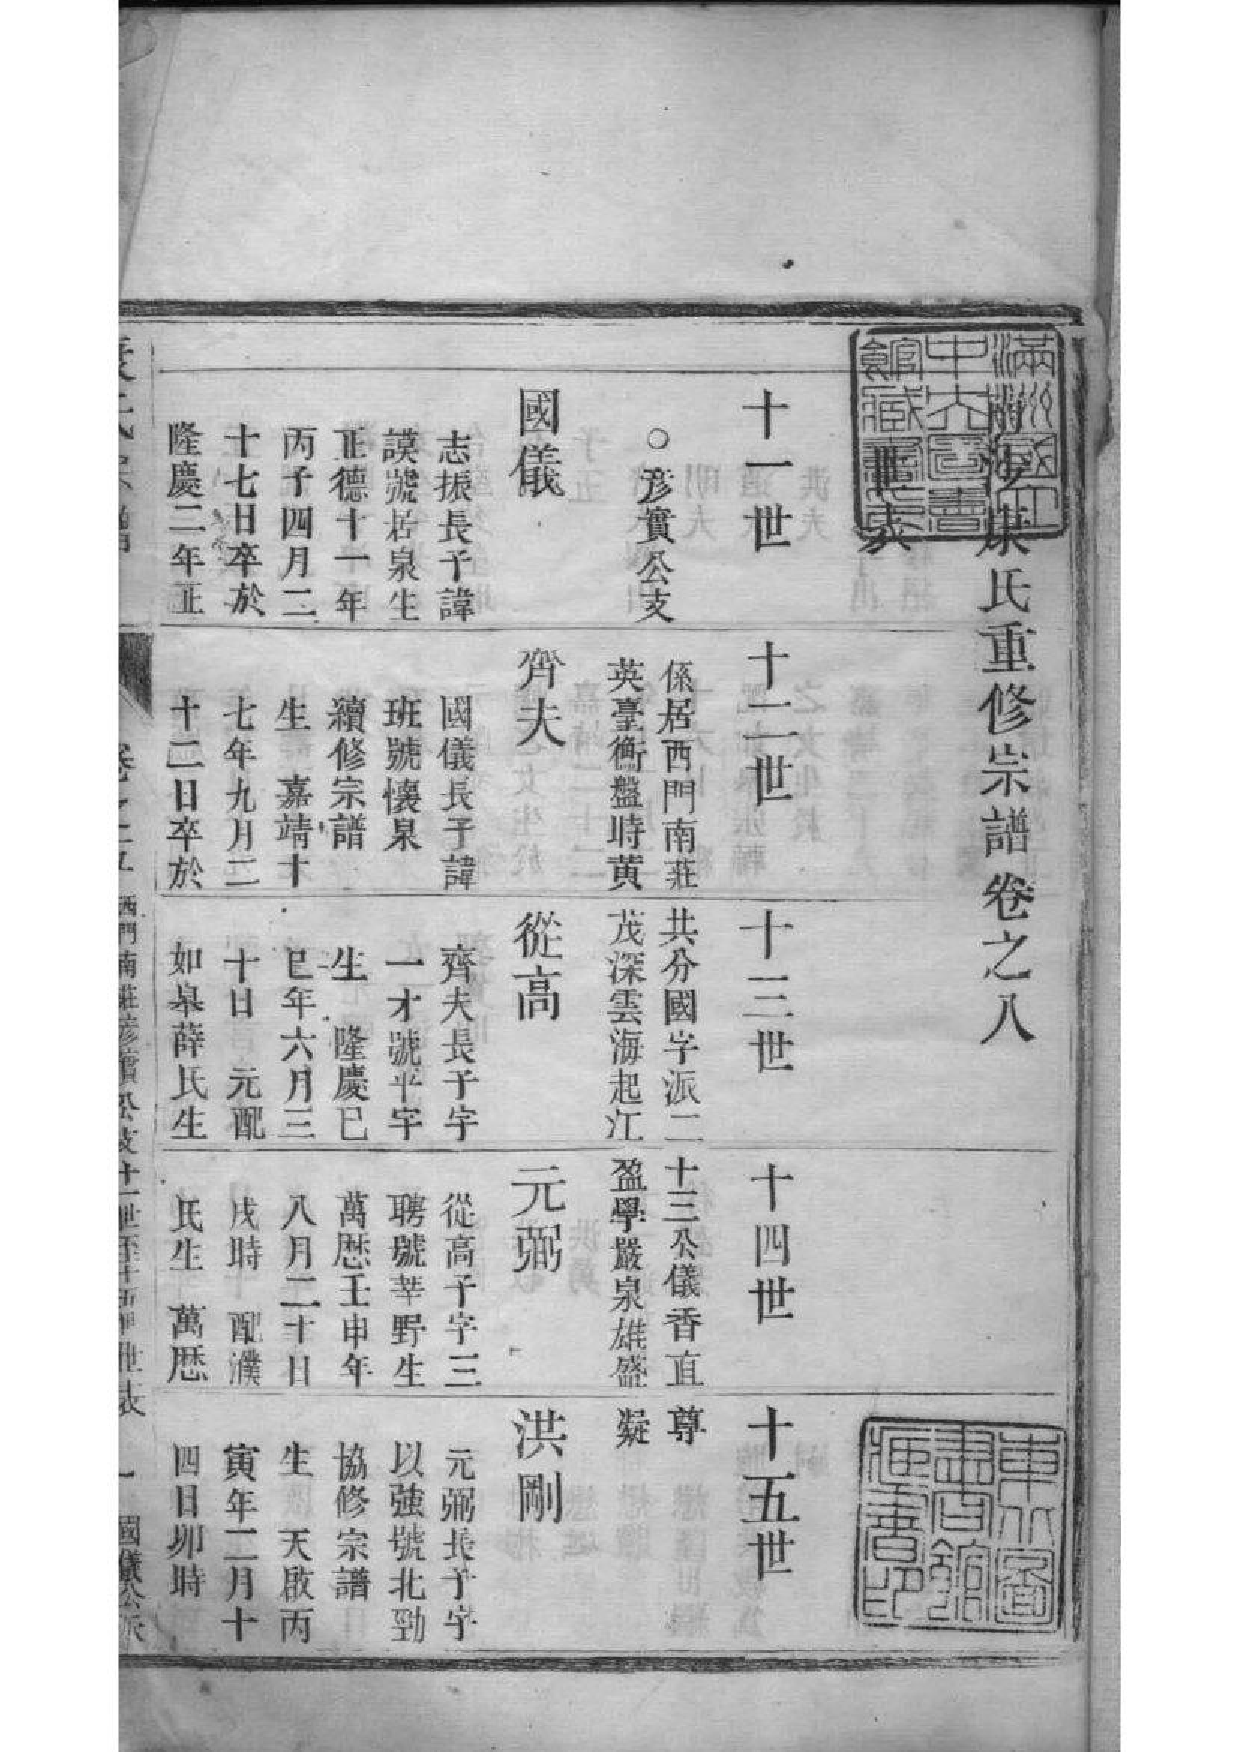 氏重修宗譜卷之八
世表
十一世
十二世
十三世
十四世
十五世
○彥實公支
係居西門南莊
共分國字派二
十三公儀香直
尊
英臺衡盤時黄
茂深雲海起江
盈學嚴泉雄盛
凝
國儀
志振長子諱
謨號居泉生
正德十一年
丙子四月二
十七日卒於
隆慶二年正
齊夫
國儀長子諱
班號懷泉
續修宗譜
生 嘉靖十
七年九月二
十二日卒於
從高
齊夫長子字
一才號平宇
生 隆慶己
巳年六月三
十日 元配
如皋薛氏生
元弼
從高子字三
聘號莘野生
萬厯壬申年
八月二十日
戌時 配濮
氏生 萬厯
洪剛
元弼長子字
以強號北勁
協修宗譜
生 天啟丙
寅年二月十
四日卯時
西門南莊彥實公支十一世至十五世世表
一
國儀公派
東北圖書館藏書印